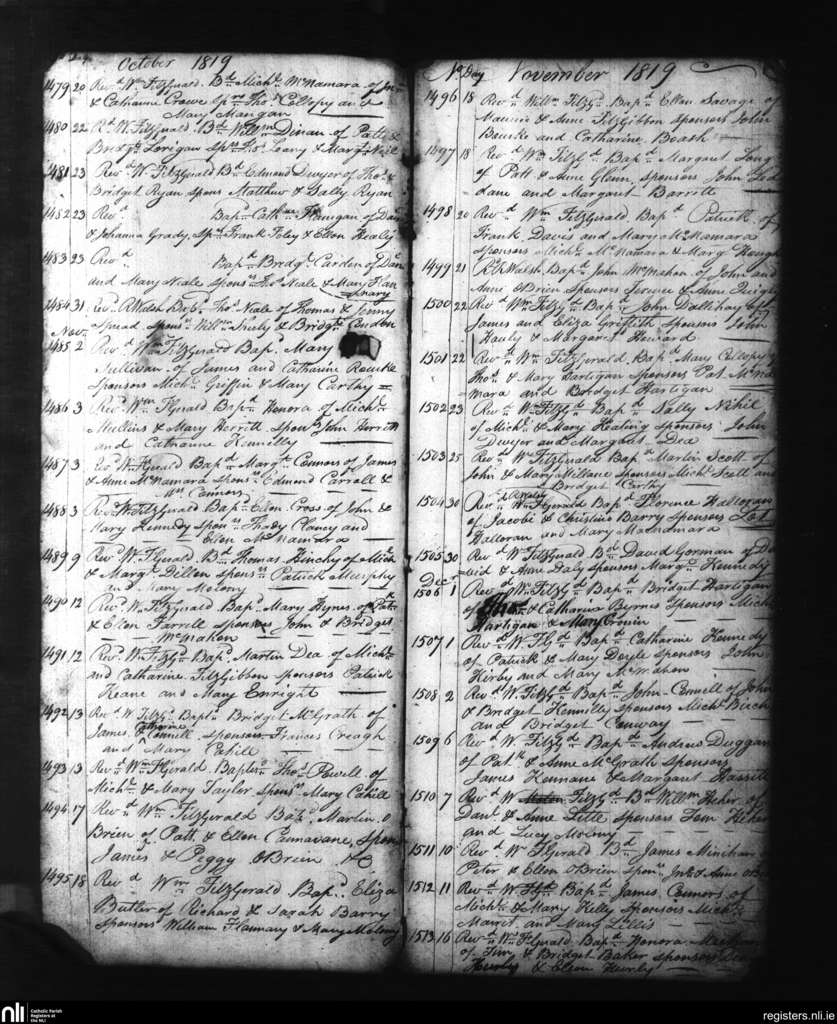 October 1819
1479 20 Revd Wm FitzGerald Bd Michl McNamara of
& Catharine Crowe Sprs Thos Collopy and
Mary Mangan
1480 22 Rd W. FitzGerald Bd Willm Dinan of Patt &
Bridgt Lorigan Sprs Jos Leary & Margt Neill
1481 23 Revd W FitzGerald Bd Edmund Dwyer of Thos &
Bridget Ryan spons Matthew & Sally Ryan
1482 23 Revd Bapd Cathne Flanigan of
& Johanna Grady, Sprs Frank Foley & Ellen Healy
1483 23 Revd Bapd Bridgt Carden of
and Mary Neale spons Thos Neale & Mary
1484 31 Revd R Walsh Bapd Thos Neale of Thomas & Jenny
Spread spons Willm & Bridgt Condon
Novr
1485 2 Revd Wm FitzGerald Bapd Mary
Sullivan of James and Catharine Rourke
Sponsors Michl Griffin & Mary Carthy =
1486 3 Revd Wm FGerald Bapd Honora of Michl
Mullins & Mary Herritt Spons John Herritt
and Catharine Kennelly
1487 3 Revd W. FGerald Bapd Margt Connors of James
& Anne McNamara spons Edmund Carroll &
Connors
1488 3 Revd W. FitzGerald Bapd Ellen Cross of John &
Mary Kennedy spons Thady Clancy and
Ellen McNamara
1489 9 Revd W. FGerald Bd Thomas Hinchy of Michl
& Margt Dillon spons Patrick Murphy
and Mary Molony
1490 12 Revd W. FitzGerald Bapd Mary Hynes of Patk
& Ellen Farrell sponsors John & Bridget
McMahon
1491 12 Revd W. Fitzgd Bapd Martin Dea of Michl
and Catharine FitzGibbon sponsors Patrick
Keane and Mary Enright
1492 13 Revd W FitzGd Bapd Bridget McGrath of
James & Catharine Connell sponsors Frances Creagh
and Mary Cahill
1493 13 Revd Wm FGerald Baptd Thos Powell of
Michl & Mary Taylor Sponr Mary Cahill
1494 17 Revd Wm FitzGerald Bapd Martin O
Brien of Patt & Ellen Cannavane, Spons
James & Peggy OBrien &c
1495 18 Revd Wm FitzGerald Bapd Eliza
Butler of Richard & Sarah Barry
Sponsors William Flannary & Mary Molony
No Day November 1819
1496 18 Revd Willm Fitzgd Bapd Ellen Savage of
Maurice & Anne FitzGibbon sponsors John
Bourke and Catharine Boash
1497 18 Revd Wm Fitzgd Bapd Margaret Long
of Patt & Anne Glenn, sponsors John
lane and Margaret Barritt
1498 20 Revd Wm FitzGerald Bapd Patrick of
Frank Davis and Mary McNamara
sponsors Michl McNamara & Marg
1499 21 Rd R Walsh Bapd John McMahon of John and
Anne OBrien Spons Terence & Anne Quigly
1500 22 Revd Wm Fitzgd Bapd John Dallihay of
James and Eliza Griffith sponsors John
Hauly & Margaret Heward
1501 22 Revd Wm FitzGerald Bapd Mary Collopy of
Thos & Mary Hartigan sponsors Pat McNa
mara and Bridget Hartigan
1502 23 Revd Wm Fitzgd Bapd Sally Nihil
of Michl & Mary Keating sponsors John
Dwyer and Margaret Dea
1503 25 Revd W FitzGerald Bapd Martin Scott of
John & Mary Millane sponsors Michl Scott and
Bridget Carthy
1504 30 Revd R Walsh FitzGerald Bapd Florence Halloran
of Jacobi & Christina Barry sponsors
Halloran and Mary Macnamara
1505 30 Revd W FitzGerald Bd David Gorman of Da
vid & Anne Daly sponsors Margt Kennedy
Decr
1506 1 Revd W Fitzgd Bapd Bridget Hartigan
of Thos & Catharine Byrnes sponsors Michl
Hartigan & Mary Cronin
1507 1 Revd W Fitzgd Bapd Catharine Kennedy
of Patrick & Mary Doyle sponsors John
Kirby and Mary McMahon
1508 2 Revd W. Fitzgd Bapd John Connell of John
& Bridget Kennelly sponsors Michl Birch
and Bridget Conway
1509 6 Revd W. Fitzgd Bapd Andrew Duggan
of Patk & Anne McGrath sponsors
James Kennane & Margaret Hassett
1510 7 Revd W FitzGd Bd Willm Heher of
Danl & Anne Little sponsors Tom Heher
and Lucy Molony
1511 10 Revd W FGerald Bd James Minihan
Peter & Ellen OBrien spons Jno & Anne
1512 11 Revd W Fitzgd Bapd James Connors of
Michl & Mary Kelly sponsors Michl
and Mary Lillis
1513 16 Revd W FGerald Bapd Honora
of Tim & Bridget Baker sponsors
Hurly & Ellen Hurly
nli
Catholic Parish
Registers at
the NLI
registers.nli.ie